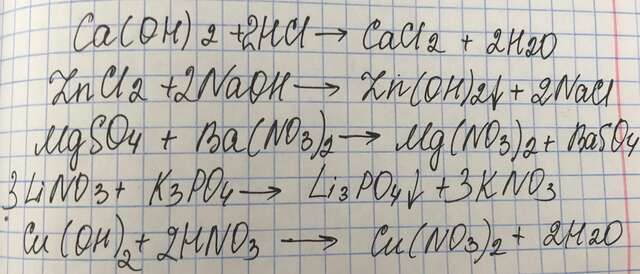 Ca(OH)2 + 2HCl → CaCl2 + 2H2O
ZnCl2 + 2NaOH → Zn(OH)2↓ + 2NaCl
MgSO4 + Ba(NO3)2 → Mg(NO3)2 + BaSO4
3LiNO3 + K3PO4 → Li3PO4↓ + 3KNO3
Cu(OH)2 + 2HNO3 → Cu(NO3)2 + 2H2O